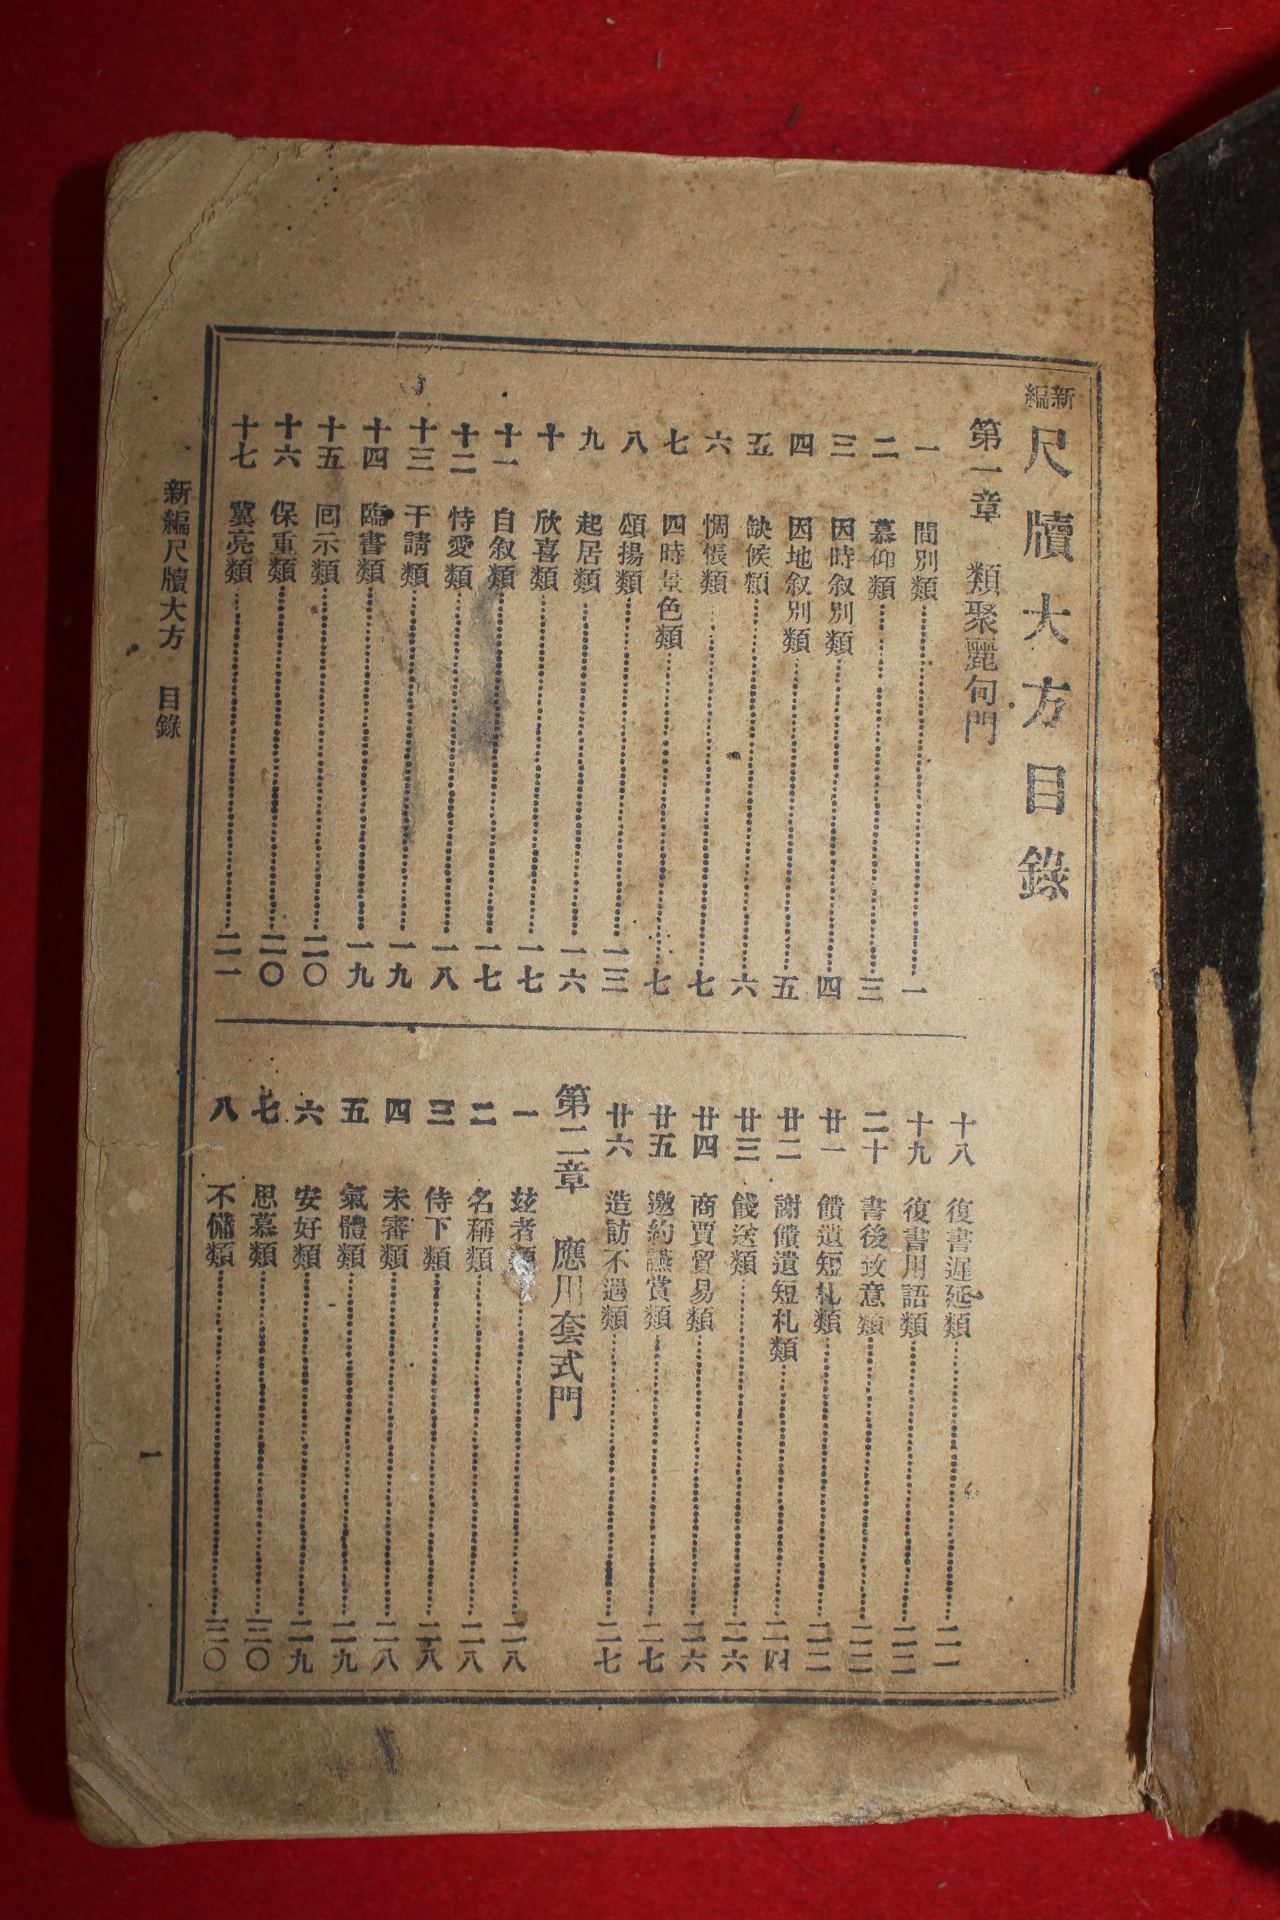 新編尺牘大方目錄
第一章 類聚麗句門
一 間別類 一
二 慕仰類 三
三 因時叙別類 四
四 因地叙別類 五
五 缺候類 六
六 惆悵類 七
七 四時景色類 七
八 頌揚類 一三
九 起居類 一六
十 欣喜類 一七
十一 自叙類 一七
十二 恃愛類 一八
十三 干請類 一九
十四 臨書類 一九
十五 回示類 二〇
十六 保重類 二〇
十七 冀亮類 二一
十八 復書遲延類 二一
十九 復書用語類 二二
二十 書後致意類 二二
廿一 饋遺短札類 二二
廿二 謝饋遺短札類 二四
廿三 餞送類 二六
廿四 商賈貿易類 二六
廿五 邀約讌賞類 二七
廿六 造訪不遇類 二七
第二章 應用套式門
一 玆者類 二八
二 名稱類 二八
三 侍下類 二八
四 未審類 二八
五 氣體類 二九
六 安好類 二九
七 思慕類 三〇
八 不備類 三〇
新編尺牘大方 目錄 一